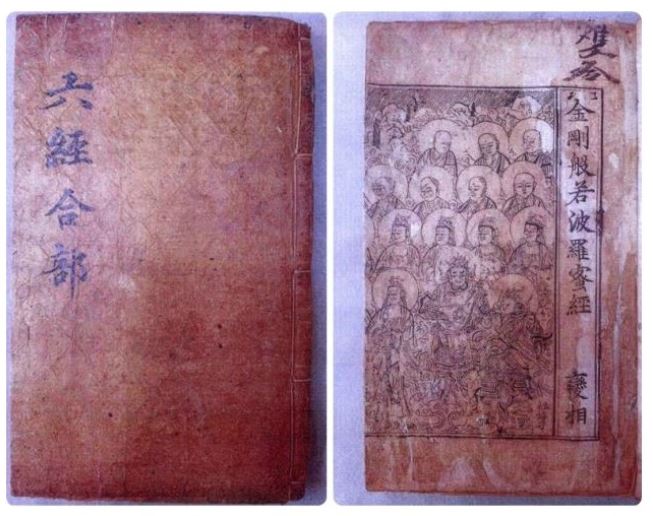 六經合部
金剛般若波羅蜜經 變相